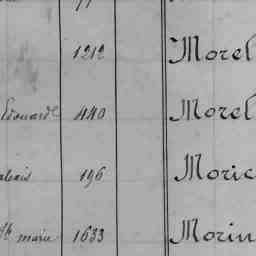 1212 Morel
Edouard 440 Morel
alexis 196 Moric
marie 1633 Morin